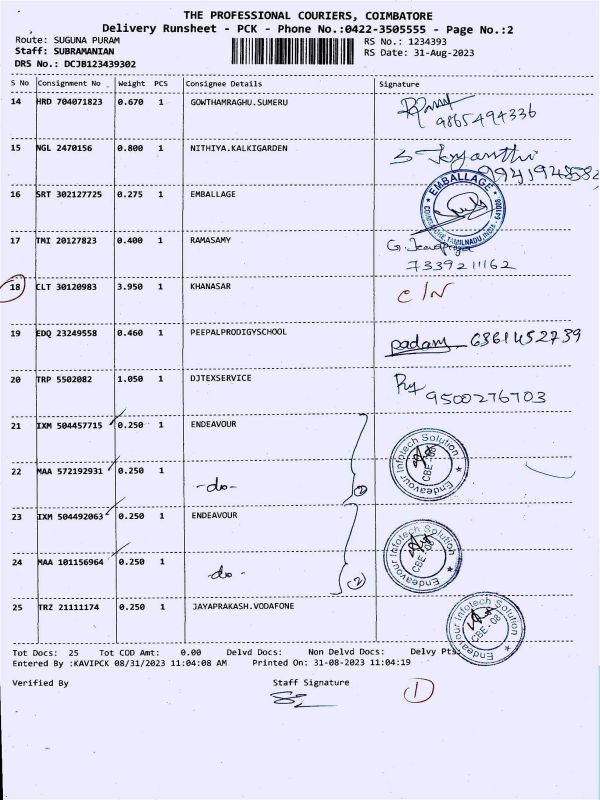 THE PROFESSIONAL COURIERS, COIMBATORE
Delivery Runsheet - PCK - Phone No.:0422-3505555 - Page No.:2
Route: SUGUNA PURAM RS No.: 1234393
Staff: SUBRAMANIAN RS Date: 31-Aug-2023
DRS No.: DCJB123439302
S No Consignment No Weight PCS Consignee Details Signature
14 HRD 704071823 0.670 1 GOWTHAMRAGHU.SUMERU
9865494336
15 NGL 2470156 0.800 1 NITHIYA.KALKIGARDEN S Jayanthi
9941948582
16 SRT 302127725 0.275 1 EMBALLAGE
EMBALLAGE
COIMBATORE, TAMILNADU, INDIA - 641008
17 TMI 20127823 0.400 1 RAMASAMY
7339211162
18 CLT 30120983 3.950 1 KHANASAR C/N
19 EDQ 23249558 0.460 1 PEEPALPRODIGYSCHOOL padany 6361452739
20 TRP 5502082 1.050 1 DJTEXSERVICE
9500276703
21 IXM 504457715 0.250 1 ENDEAVOUR
Endeavour Infotech Solution
CBE - 08
22 MAA 572192931 0.250 1 -do- 2
23 IXM 504492063 0.250 1 ENDEAVOUR
Endeavour Infotech Solution
CBE - 08
24 MAA 101156964 0.250 1 -do- 2
25 TRZ 21111174 0.250 1 JAYAPRAKASH.VODAFONE
Endeavour Infotech Solution
CBE - 08
Tot Docs: 25 Tot COD Amt: 0.00 Delvd Docs: Non Delvd Docs: Delvy Pts:
Entered By :KAVIPCK 08/31/2023 11:04:08 AM Printed On: 31-08-2023 11:04:19
Verified By Staff Signature 1